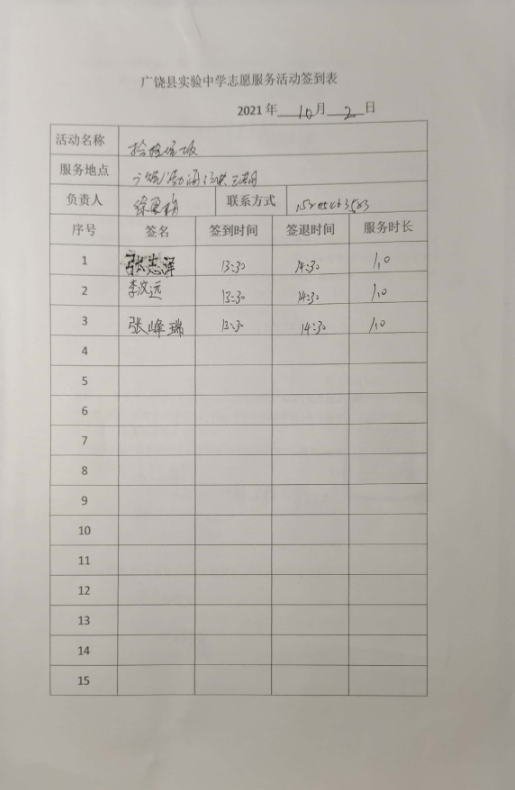 广饶县实验中学志愿服务活动签到表
2021 年 10 月 2 日
活动名称 捡拾垃圾
服务地点
负责人 联系方式
序号 签名 签到时间 签退时间 服务时长
1 张志泽 13:30 14:30 1.0
2 李文远 13:30 14:30 1.0
3 张峰瑞 13:30 14:30 1.0
4
5
6
7
8
9
10
11
12
13
14
15